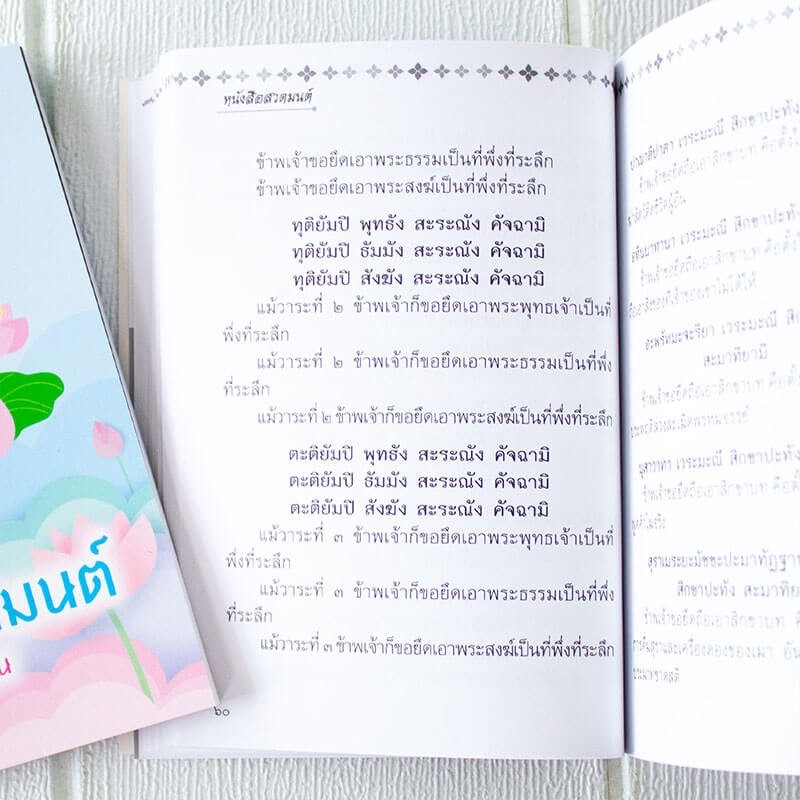 มนต์
หนังสือสวดมนต์
ข้าพเจ้าขอยึดเอาพระธรรมเป็นที่พึ่งที่ระลึก
ข้าพเจ้าขอยึดเอาพระสงฆ์เป็นที่พึ่งที่ระลึก
ทุติยัมปิ พุทธัง สะระณัง คัจฉามิ
ทุติยัมปิ ธัมมัง สะระณัง คัจฉามิ
ทุติยัมปิ สังฆัง สะระณัง คัจฉามิ
แม้วาระที่ ๒ ข้าพเจ้าก็ขอยึดเอาพระพุทธเจ้าเป็นที่
พึ่งที่ระลึก
แม้วาระที่ ๒ ข้าพเจ้าก็ขอยึดเอาพระธรรมเป็นที่พึ่ง
ที่ระลึก
แม้วาระที่ ๒ ข้าพเจ้าก็ขอยึดเอาพระสงฆ์เป็นที่พึ่งที่ระลึก
ตะติยัมปิ พุทธัง สะระณัง คัจฉามิ
ตะติยัมปิ ธัมมัง สะระณัง คัจฉามิ
ตะติยัมปิ สังฆัง สะระณัง คัจฉามิ
แม้วาระที่ ๓ ข้าพเจ้าก็ขอยึดเอาพระพุทธเจ้าเป็นที่
พึ่งที่ระลึก
แม้วาระที่ ๓ ข้าพเจ้าก็ขอยึดเอาพระธรรมเป็นที่พึ่ง
ที่ระลึก
แม้วาระที่ ๓ ข้าพเจ้าก็ขอยึดเอาพระสงฆ์เป็นที่พึ่งที่ระลึก
๖๐
ปาณาติปาตา เวระมะณี สิกขาปะทัง
ข้าพเจ้าขอยึดถือเอาสิกขาบท คือตั้งใ
อทินนาทานา เวระมะณี สิกขาปะทัง
ข้าพเจ้าขอยึดถือเอาสิกขาบท คือตั้ง
ถือเอาสิ่งของที่เจ้าของเขาไม่ได้ให้
อะพรัหมะจะริยา เวระมะณี สิก
สะมาทิยามิ
ข้าพเจ้าขอยึดถือเอาสิกขาบท คือตั้ง
ประพฤติล่วงละเมิดพรหมจรรย์
มุสาวาทา เวระมะณี สิกขาปะทัง
ข้าพเจ้าขอยึดถือเอาสิกขาบท คือตั้
พูดคำไม่จริง
สุราเมระยะมัชชะปะมาทัฏฐาน
สิกขาปะทัง สะมาทิย
ข้าพเจ้าขอยึดถือเอาสิกขาบท ค
การดื่มสุราและเครื่องดองของเมา อัน
ประมาทขาดสติ